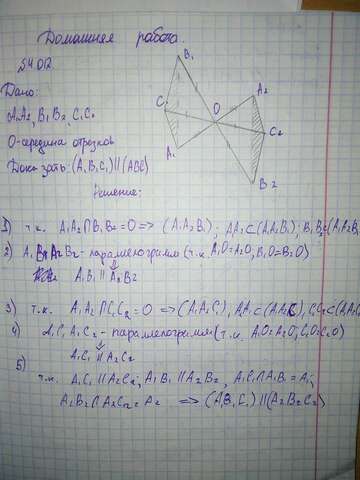 Домашняя работа.
§4 012.
Дано:
A₁A₂, B₁B₂, C₁C₂
O-середина отрезков
Доказать: (A₁B₁C₁)||(ABC)
Решение:
B₁
A₂
C₁
O
C₂
A₁
B₂
1) т.к. A₁A₂∩B₁B₂=O => (A₁A₂B₁); AA₁⊂(A₁A₂B₁); B₁B₂⊂(A₁A₂B₁
2) A₁B₁A₂B₂-параллелограмм (т.к. A₁O=A₂O; B₁O=B₂O)
A₁B₁ || A₂B₂
3) т.к. A₁A₂∩C₁C₂=O => (A₁A₂C₁), AA₁⊂(AA₂C), C₁C₂⊂(AA₂C
4) A₁C₁A₂C₂ - параллелограмм (т.к. A₁O=A₂O; C₁O=C₂O)
A₁C₁ || A₂C₂
5)
т.к. A₁C₁ || A₂C₂; A₁B₁ || A₂B₂, A₁C₁∩A₁B₁=A₁;
A₂B₂∩A₂C₂=A₂ => (A₁B₁C₁) || (A₂B₂C₂)